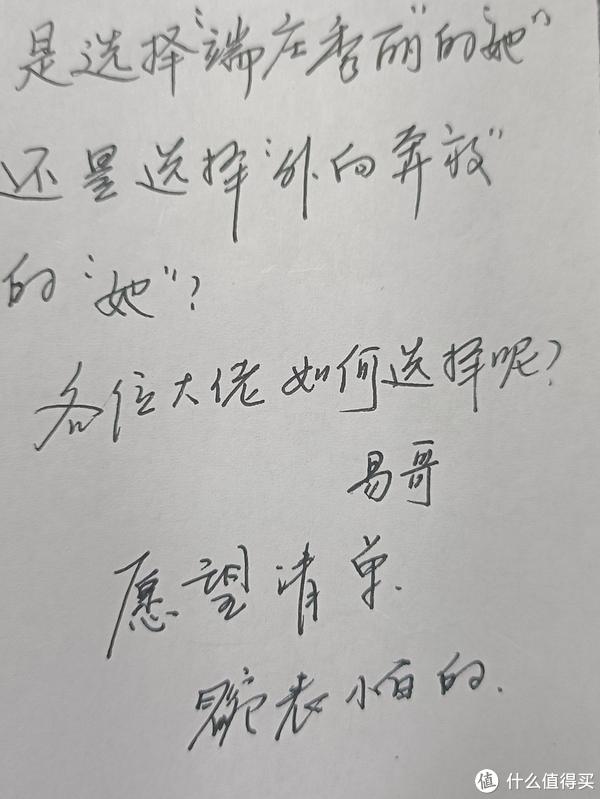 是选择“端庄秀丽”的“她”
还是选择“外向奔放”
的“她”?
各位大佬如何选择呢?
易哥
愿望清单.
腕表小白的.
值 什么值得买